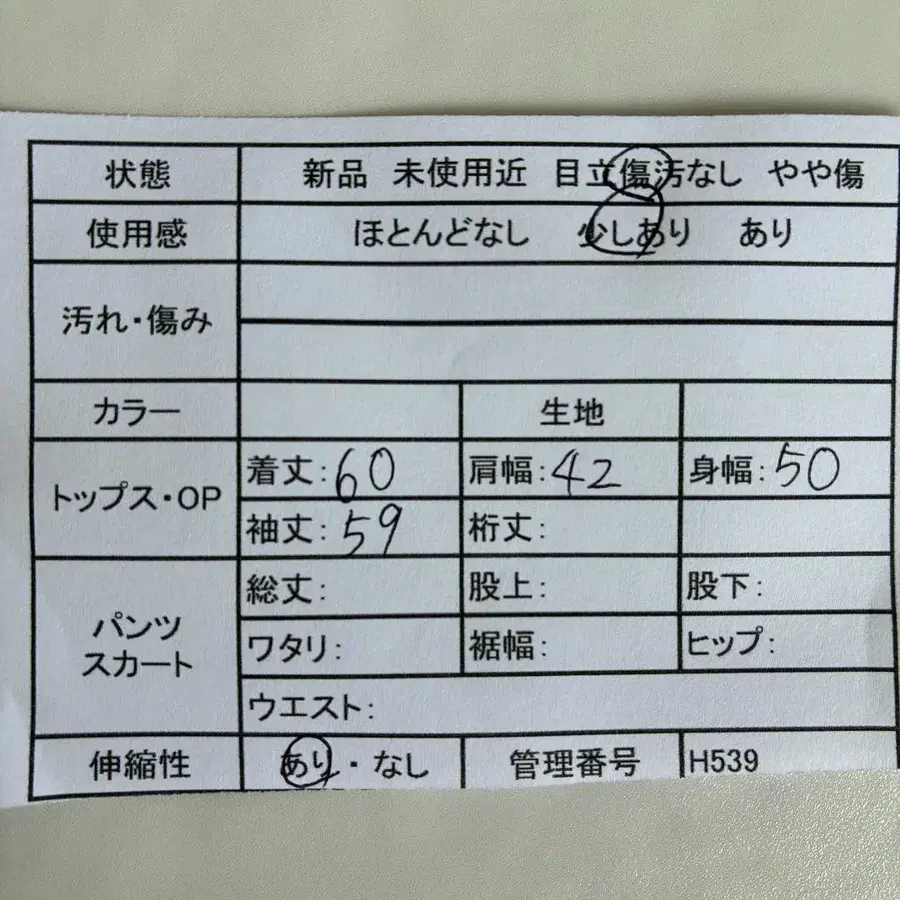 状態 新品 未使用近 目立傷汚なし やや傷
使用感 ほとんどなし 少しあり あり
汚れ・傷み
カラー 生地
トップス・OP
着丈:60 肩幅:42 身幅:50
袖丈:59 裄丈:
パンツ
スカート
総丈: 股上: 股下:
ワタリ: 裾幅: ヒップ:
ウエスト:
伸縮性 あり・なし 管理番号 H539